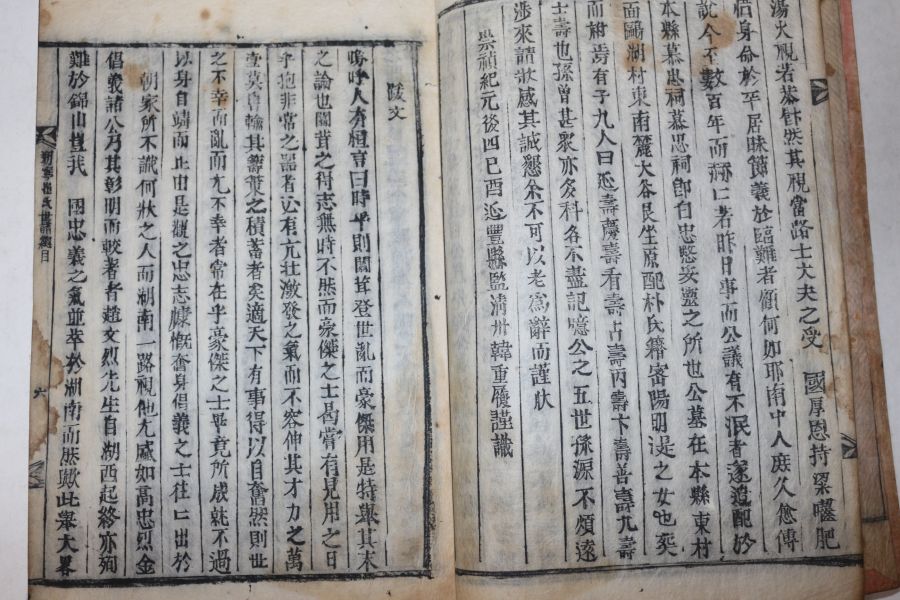 湯火視若恭然其視當路士大夫之受 國厚恩持粱囓肥
惜身命於平居昧節義於臨難者顧何如耶南中人庶久愈傳
說今不數百年而赫仁者昨日事而公議有不泯者遂追配於
本縣慕忠祠慕忠祠卽白忠愍妥靈之所也公墓在本縣東村
面鷗湖村東南麓大谷艮坐原配朴氏籍密陽明是之女也葬
而祔焉有子九人曰延壽慶壽看壽占壽丙壽卞壽善壽九壽
士壽也孫曾甚衆亦多科名不盡記憶公之五世孫源不煩遠
涉來請狀感其誠懇余不可以老爲辭而謹狀
崇禎紀元後四己酉延豐縣監淸州韓重履謹識
跋文
嗚呼人有恒言曰時平則闒茸登世亂而豪傑用是特擧其末
之論也闒茸之得志無時不然而豪傑之士曷嘗有見用之日
乎抱非常之器者必有亢壯激發之氣而不容伸其才力之萬
壹莫由輸其籌蘊之積蓄者矣適天下有事得以自奮然則世
之不幸而亂而尤不幸者常在乎豪傑之士畢竟所成就不過
以身自靖而止由是趣之忠志慷慨奮身倡義之士往亡出於
朝家所不識何狀之人而湖南一路視他尤盛如高忠烈金
倡義諸公乃其彰明而較著者趙文烈先生自湖西起終亦殉
難於錦山豈我 國忠義之氣並萃於湖南而然歟此擧大畧
朔寧崔氏世譜 目
六